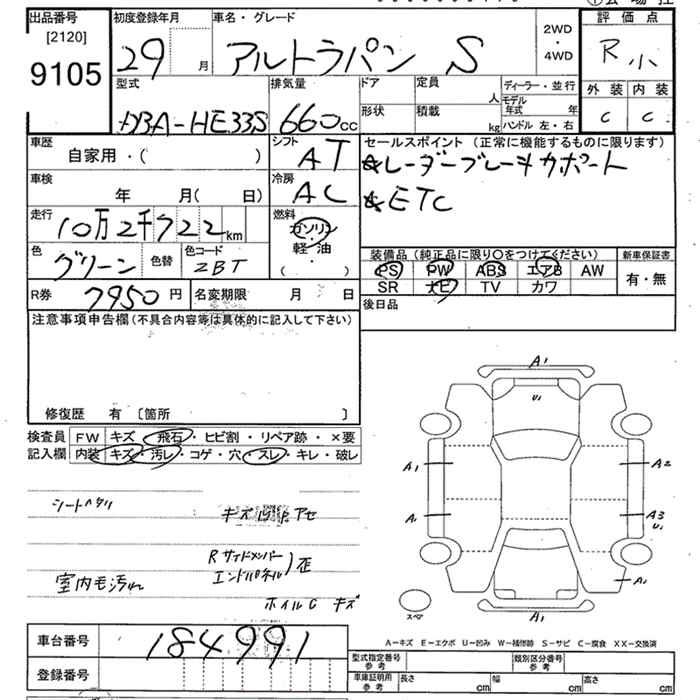 出品番号 初度登録年月 車名・グレード 2WD ・ 4WD 評価点
[2120]
9105 29 月 アルトラパン S R 小
型式 排気量 ドア 定員 人 ディーラー・並行 外装 内装
DBA-HE33S 660cc 形状 積載 kg モデル年式 年 ハンドル 左・右 C C
車歴 シフト セールスポイント (正常に機能するものに限ります)
自家用・( ) AT ★レーダーブレーキサポート
車検 冷房 ★ETC
年 月( 日) AC
走行 燃料
10万2千722km ガソリン
軽・油
( ・ )
色 色替 色コード 装備品 (純正品に限り○をつけてください) 新車保証書
グリーン ZBT PS PW ABS エアB AW 有・無
SR ナビ TV カワ
R券 7950円 名変期限 月 日 後日品
注意事項申告欄(不具合内容等は具体的に記入して下さい)
修復歴 有 [箇所 ]
検査員 FW キズ・飛石・ヒビ割・リペア跡・×要
記入欄 内装 キズ・汚レ・コゲ・穴・スレ・キレ・破レ
シートヘタリ
キズ アセ
Rサイドメンバー
エンドパネル)歪
室内モ汚れ
ホイルC キズ
A1
U1
A1 A2
A1 A3
U1
A1
スペア A1
A-キズ E-エクボ U-凹み W-補修跡 S-サビ C-腐食 XX-交換済
車台番号 184991 型式指定番号 参考 類別区分番号 参考
登録番号 車庫証明用 参考 長さ cm 幅 cm 高さ cm